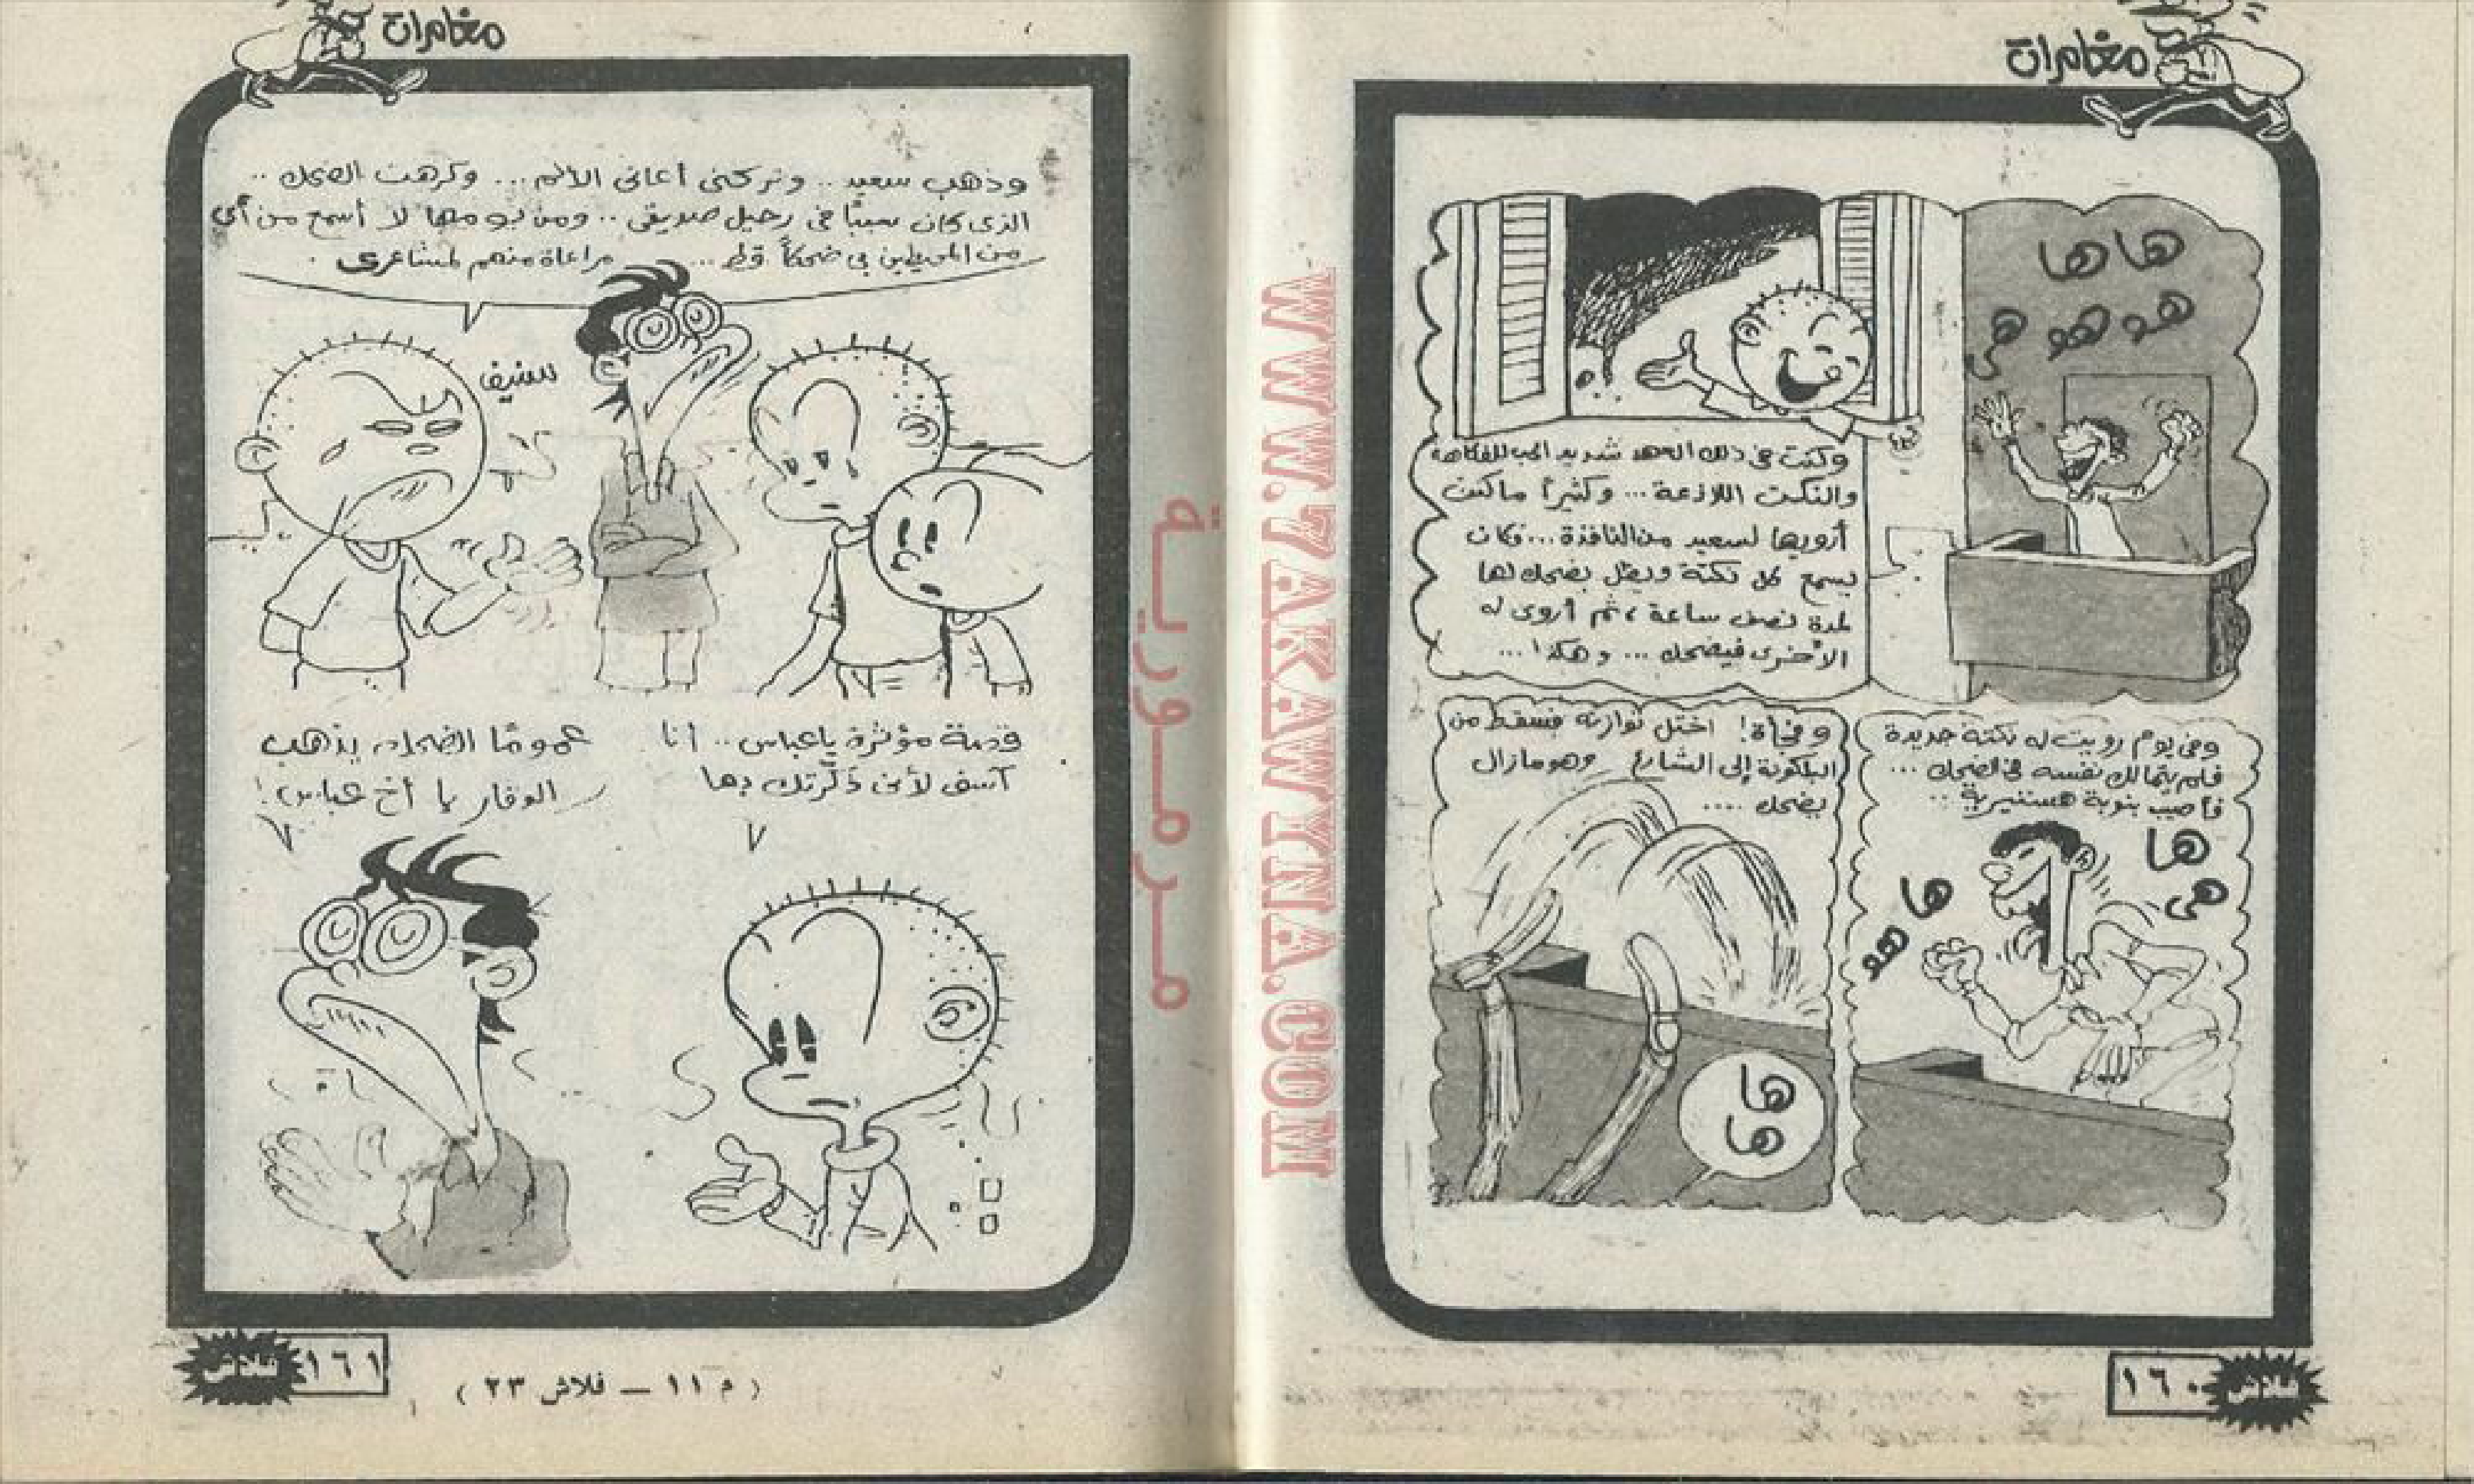 مغامرات
ها ها
هو هو هى
وكنت فى ذلك العهد شديد الحب للفكاهة
والنكت اللاذعة ... وكثيراً ما كنت
أرويها لسعيد من النافذة ... فكان
يسمع كل نكتة ويظل يضحك لها
لمدة نصف ساعة ، ثم أروى له
الأخرى فيضحك ... وهكذا ...
وفى يوم رويت له نكتة جديدة
فلم يتمالك نفسه فى الضحك ...
فأصيب بنوبة هستيرية ..
ها
هى
ها
هو
وفجأة ! اختل توازنه فسقط من
البلكونة إلى الشارع وهو مازال
يضحك ....
ها
ها
١٦٠
فلاش
مغامرات
وذهب سعيد .. وتركنى أعانى الألم ... وكرهت الضحك ..
الذى كان سبباً فى رحيل صديقى .. ومن يومها لا أسمع من أى
من المحيطين بى ضحكاً قط ... مراعاة منهم لمشاعرى .
سنيف
قصة مؤثرة ياعباس .. أنا
آسف لأنى ذكّرتك بها
عموماً الضحك يذهب
الوقار يا أخ عباس !
١٦١
فلاش
( م ١١ – فلاش ٢٣ )
مرمورية
WWW.ZAKAWINA.COM